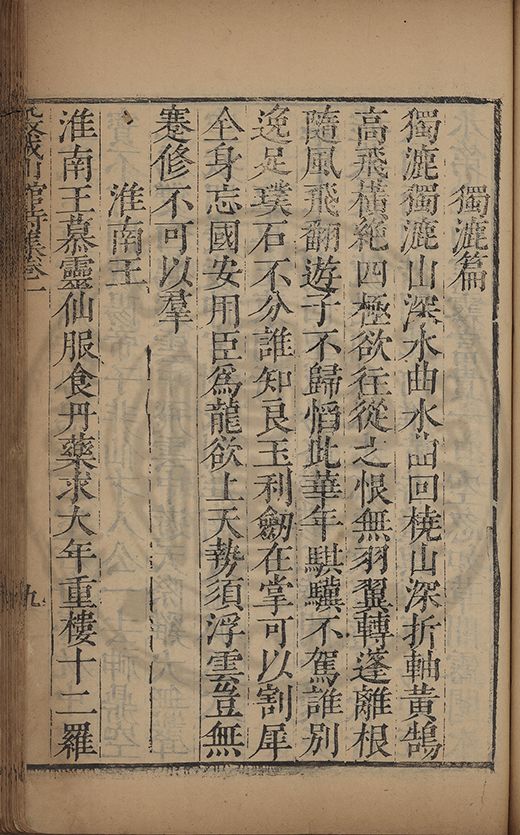 獨漉篇
獨漉獨漉山深水曲水曲回橈山深折軸黃鵠
高飛橫絶四極欲往從之恨無羽翼轉蓬離根
隨風飛翻遊子不歸慆此華年騏驥不駕誰別
逸足璞石不分誰知良玉利劒在掌可以割犀
全身忘國安用臣爲龍欲上天勢須浮雲豈無
蹇修不可以羣
淮南王
淮南王慕靈仙服食丹藥求大年重樓十二羅
九